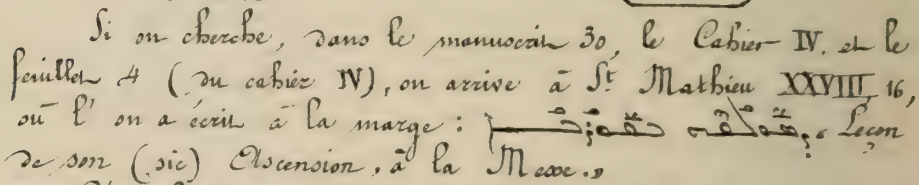 Si on cherche, dans le manuscrit 30, le Cahier IV. et le
feuillet 4 (du cahier IV), on arrive à St. Mathieu XXVIII, 16,
où l'on a écrit à la marge : « Leçon
de son (sic) Ascension, à la Messe. »